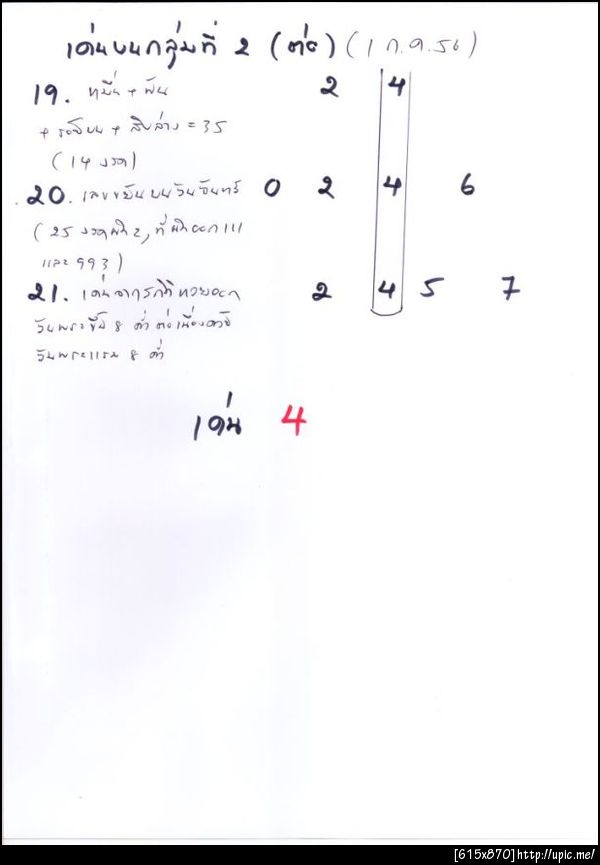 เด่นบนกลุ่มที่ 2 (ต่อ) (1 ก.ค. 56)
19. หมื่น + พัน 2 4
+ ร้อยบน + สิบล่าง = 35
(14 งวด)
20. เลขขยันบนวันจันทร์ 0 2 4 6
(25 งวดผิด 2, ที่ผิดออก 111
และ 993)
21. เด่นจากสถิติหวยออก 2 4 5 7
วันพระขึ้น 8 ค่ำ ต่อเนื่องถึง
วันพระแรม 8 ค่ำ
เด่น 4
[615x870]http://upic.me/